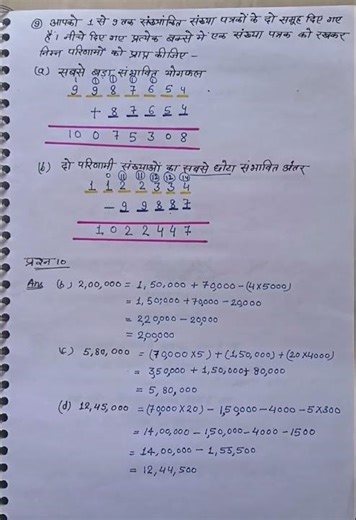 ⑨ आपको 1 से 9 तक संख्यांकित संख्या पत्रकों के दो समूह दिए गए
हैं। नीचे दिए गए प्रत्येक बक्से में एक संख्या पत्रक को रखकर
निम्न परिणामों को प्राप्त कीजिए -
(a) सबसे बड़ा संभावित योगफल
1 1 1 1
9 9 8 7 6 5 4
+ 8 7 6 5 4
10 0 7 5 3 0 8
(b) दो परिणामी संख्याओं का सबसे छोटा संभावित अंतर
0 11 11 12 12 14
1 1 2 2 3 3 4
- 9 9 8 8 7
1 0 2 2 4 4 7
प्रश्न 10.
Ans (b) 2,00,000 = 1,50,000 + 70,000 - (4x5000)
= 1,50,000 + 70,000 - 20,000
= 2,20,000 - 20,000
= 2,00,000
(c) 5,80,000 = (70,000 x 5) + (1,50,000) + (20 x 4000)
= 3,50,000 + 1,50,000 + 80,000
= 5,80,000
(d) 12,45,000 = (70,000 x 20) - 1,50,000 - 4000 - 5 x 300
= 14,00,000 - 1,50,000 - 4000 - 1500
= 14,00,000 - 1,55,500
= 12,44,500